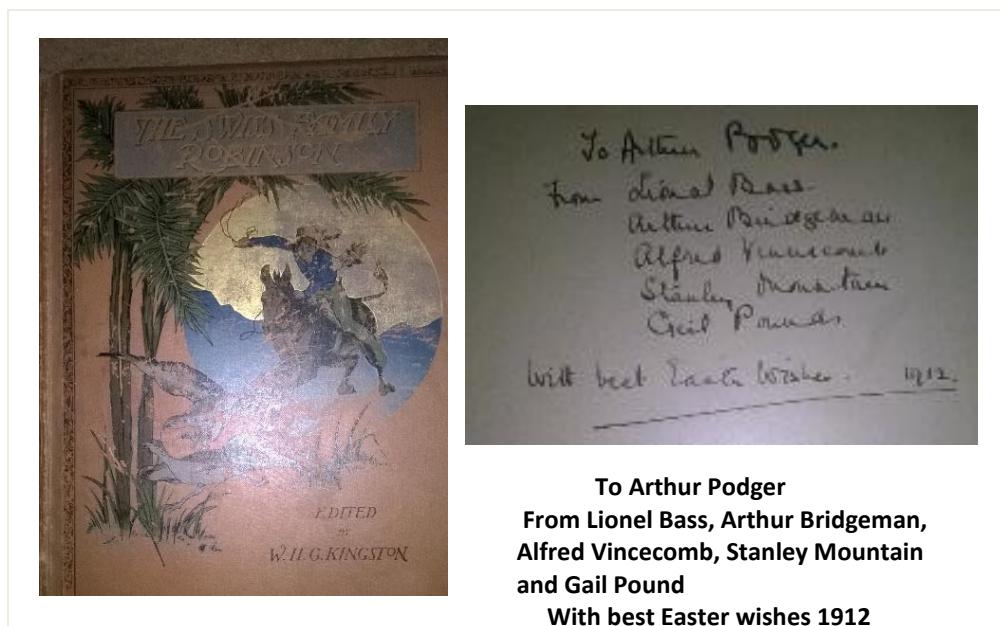 THE SWISS FAMILY
ROBINSON
EDITED
BY
W.H.G. KINGSTON
To Arthur Podger.
From Lional Bass.
Arthur Bridgeman
Alfred Vinnecomb
Stanley Mountain
Cecil Pounds
With best Easter Wishes. 1912.
To Arthur Podger
From Lionel Bass, Arthur Bridgeman,
Alfred Vincecomb, Stanley Mountain
and Gail Pound
With best Easter wishes 1912